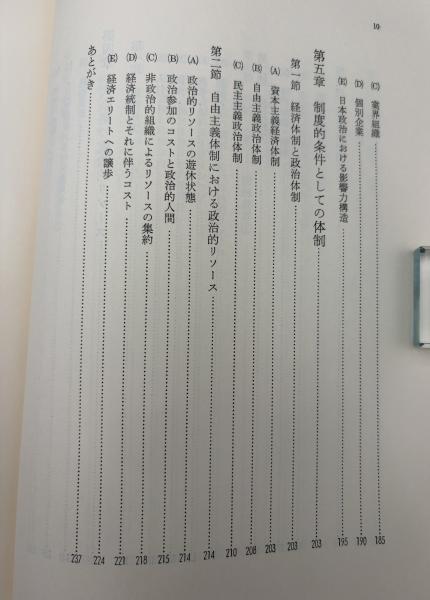 10
(C) 業界組織 185
(D) 個別企業 190
(E) 日本政治における影響力構造 195
第五章 制度的条件としての体制 203
第一節 経済体制と政治体制 203
(A) 資本主義経済体制 203
(B) 自由主義政治体制 208
(C) 民主主義政治体制 210
第二節 自由主義体制における政治的リソース 214
(A) 政治的リソースの遊休状態 214
(B) 政治参加のコストと政治的人間 215
(C) 非政治的組織によるリソースの集約 218
(D) 経済統制とそれに伴うコスト 221
(E) 経済エリートへの譲歩 224
あとがき 237